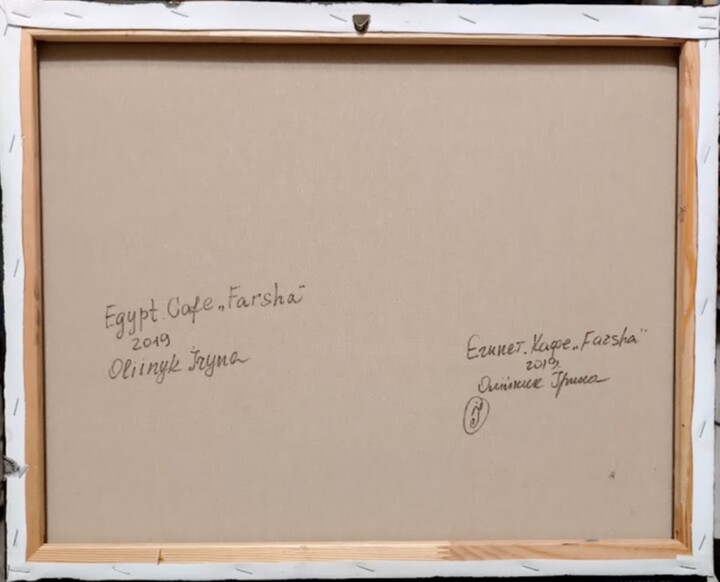 Egypt. Cafe „Farsha"
2019
Oliinyk Iryna
Египет. Кафе „Farsha"
2019.
Олійник Ірина